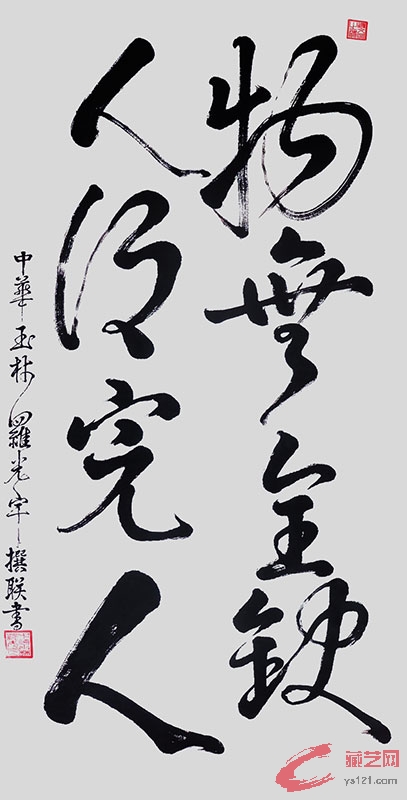 物無全缺
人没完人
中華玉林羅光宇撰联書
藏艺网
ys121.com